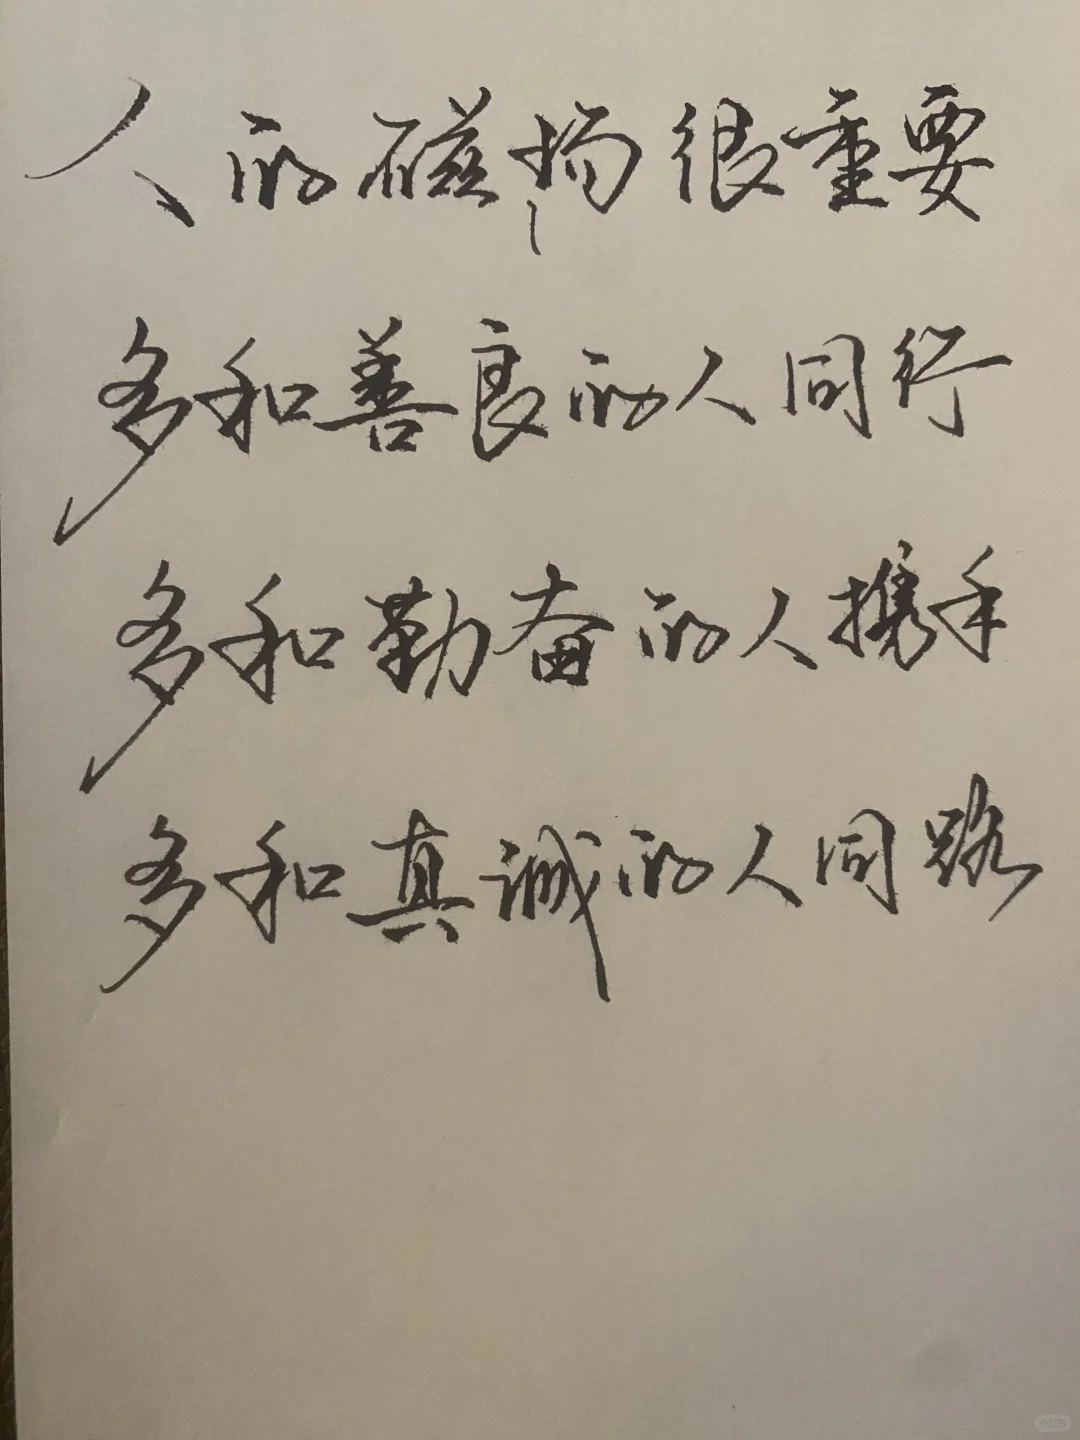 人的磁场很重要
多和善良的人同行
多和勤奋的人携手
多和真诚的人同路